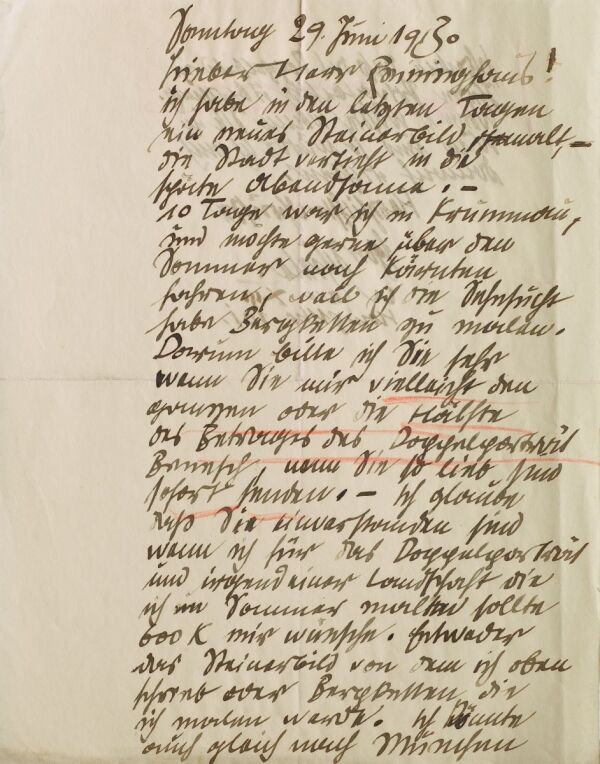 Sonntag 29. Juni 1913.
Lieber Herr Reininghaus!
ich habe in den letzten Tagen
ein neues Steinerbild gemalt, –
die Stadt vertieft in die
späte Abendsonne. –
10 Tage war ich in Krummau,
und möchte gerne über den
Sommer nach Kärnten
fahren, weil ich die Sehnsucht
habe Bergketten zu malen.
Darum bitte ich Sie sehr
wenn Sie mir vielleicht den
ganzen oder die Hälfte
des Betrages des Doppelporträt
Benesch, wenn Sie so lieb sind
sofort senden. – ich glaube
daß Sie einverstanden sind
wenn ich für das Doppelporträt
und irgendeiner Landschaft die
ich im Sommer malen sollte
600 K mir wünsche. Entweder
das Steinerbild von dem ich oben
schrieb oder Bergketten die
ich malen werde. ich könnte
auch gleich nach München